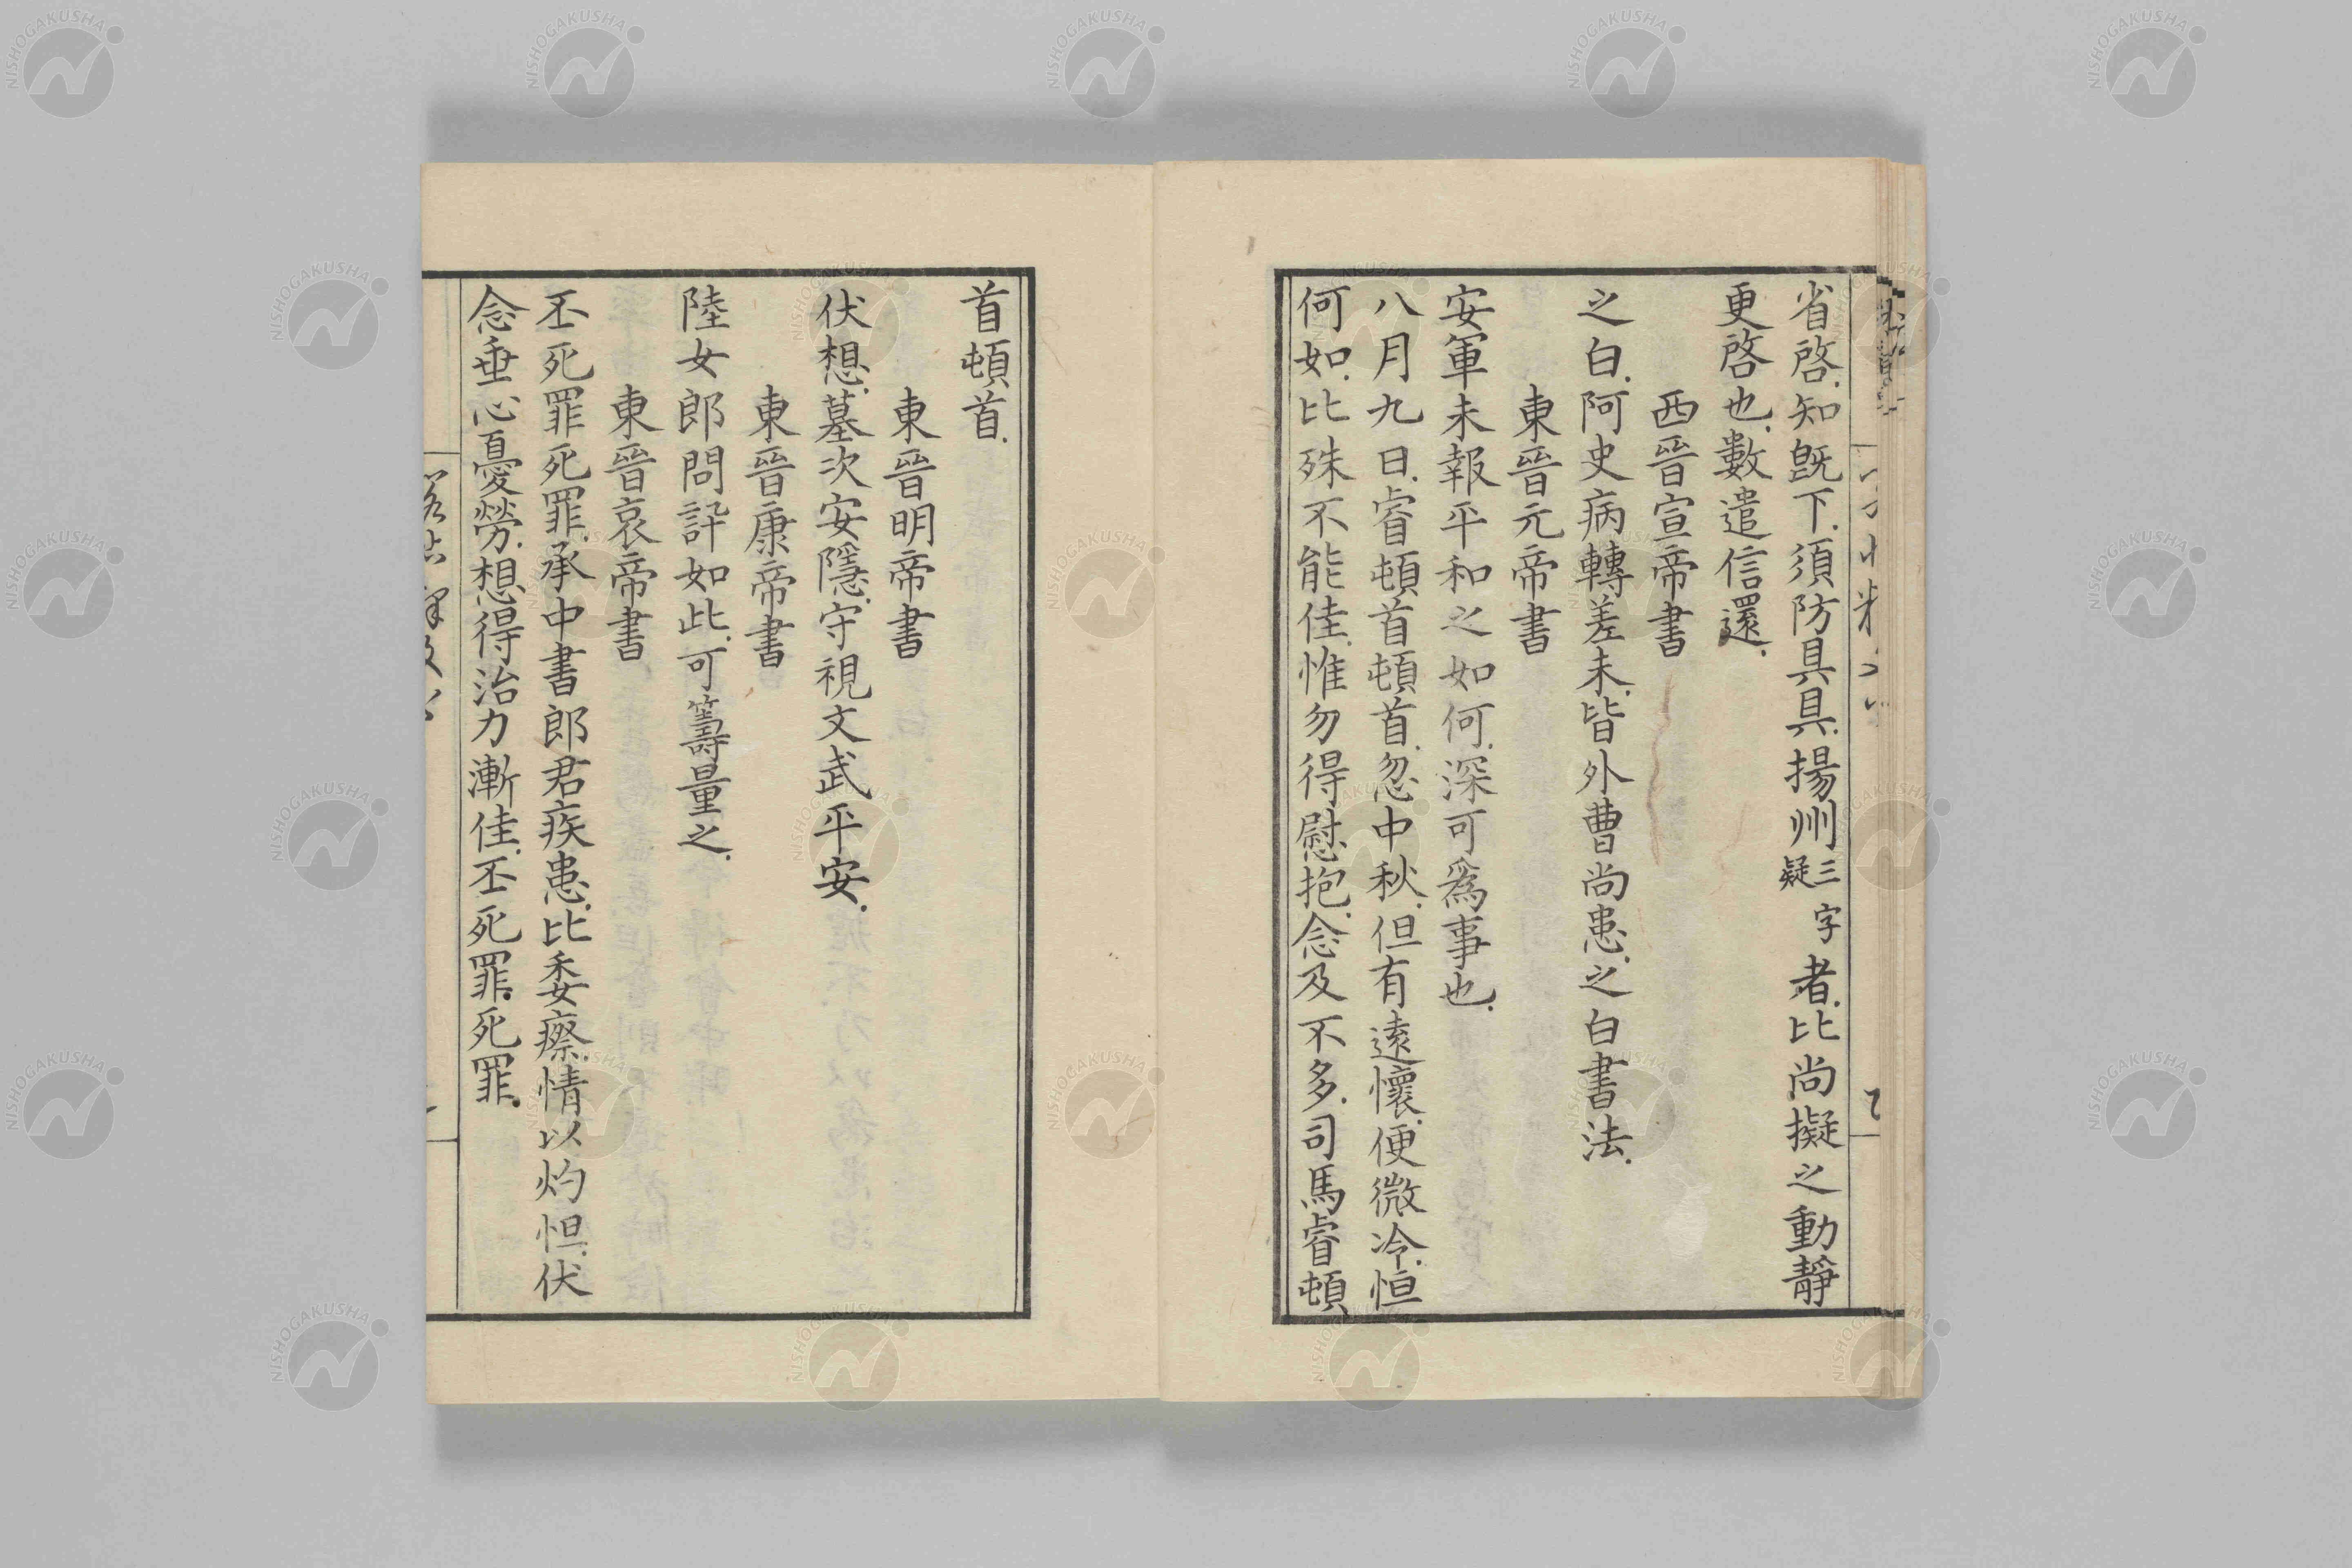 省啓.知旣下.須防具具.揚州三字疑者.比尚擬之動靜
更啓也.數遣信還.
西晉宣帝書
之白.阿史病轉差未.皆外曹尚患.之白書法.
東晉元帝書
安軍未報平和之如何.深可爲事也.
八月九日.睿頓首頓首.忽中秋.但有遠懷.便微冷.恒
何如.比殊不能佳.惟勿得慰抱.念及不多.司馬睿頓
首頓首.
東晉明帝書
伏想.墓次安隱.守視文武平安.
東晉康帝書
陸女郎問訃如此.可籌量之.
東晉哀帝書
丕死罪死罪.承中書郎君疾患.比委瘵.情以灼怛.伏
念垂心憂勞.想得治力漸佳.丕死罪.死罪.
NISHOGAKUSHA